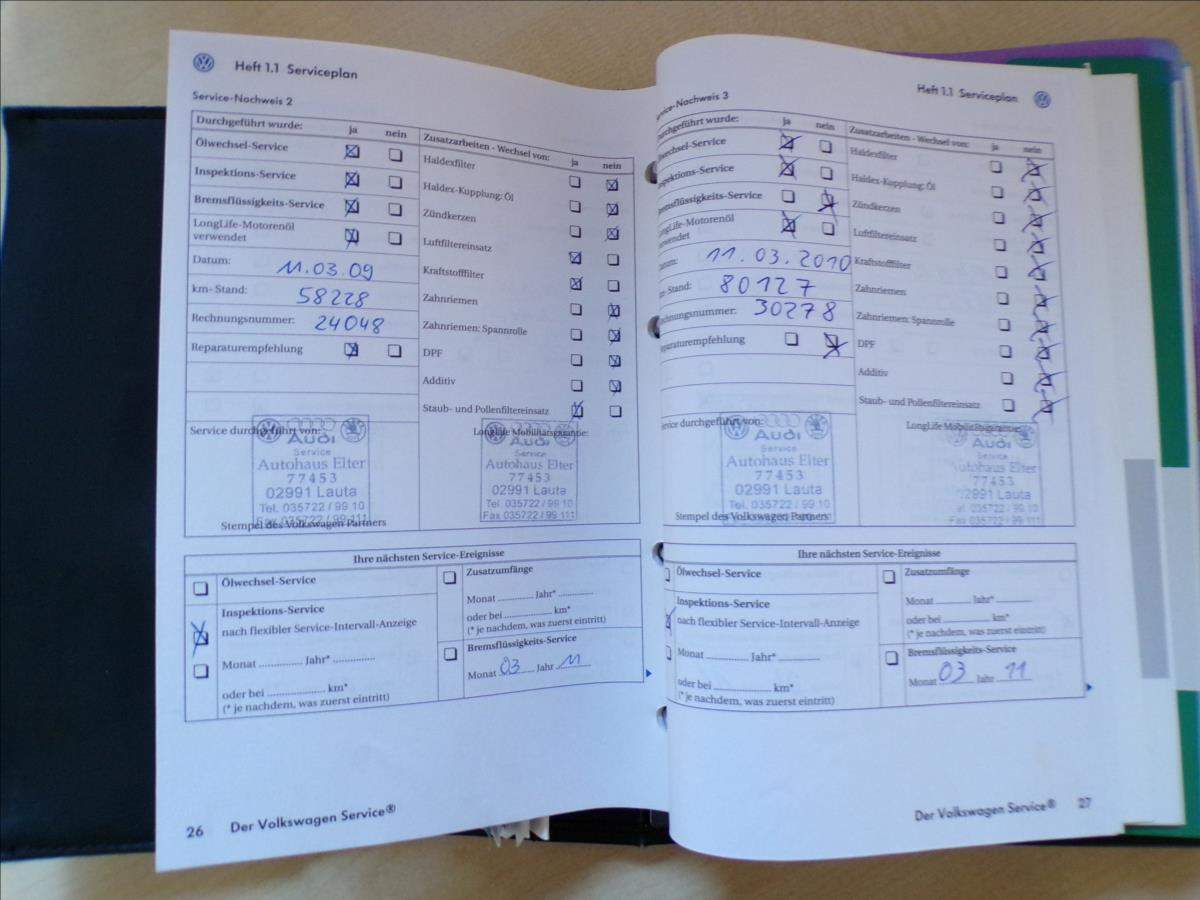 Heft 1.1 Serviceplan
Service-Nachweis 2
Durchgeführt wurde: ja nein
Ölwechsel-Service
Inspektions-Service
Bremsflüssigkeits-Service
LongLife-Motorenöl
verwendet
Datum: 11.03.09
km-Stand: 58228
Rechnungsnummer: 24048
Reparaturempfehlung
Zusatzarbeiten - Wechsel von: ja nein
Haldexfilter
Haldex-Kupplung: Öl
Zündkerzen
Luftfiltereinsatz
Kraftstofffilter
Zahnriemen
Zahnriemen: Spannrolle
DPF
Additiv
Staub- und Pollenfiltereinsatz
Service durchgeführt von:
Audi
Service
Autohaus Elter
77453
02991 Lauta
Tel. 035722/99 10
Fax 035722/99 111
Stempel des Volkswagen Partners
LongLife Mobilitätsgarantie:
Audi
Service
Autohaus Elter
77453
02991 Lauta
Tel. 035722/99 10
Fax 035722/99 111
Ihre nächsten Service-Ereignisse
Ölwechsel-Service
Inspektions-Service
nach flexibler Service-Intervall-Anzeige
Monat ............ Jahr* ............
oder bei ................ km*
(* je nachdem, was zuerst eintritt)
Zusatzumfänge
Monat .......... Jahr* ..........
oder bei ............... km*
(* je nachdem, was zuerst eintritt)
Bremsflüssigkeits-Service
Monat 03 Jahr 11
26 Der Volkswagen Service®
Heft 1.1 Serviceplan
-Nachweis 3
geführt wurde: ja nein
wechsel-Service
pektions-Service
emsflüssigkeits-Service
ngLife-Motorenöl
erwendet
11.03.2010
-Stand: 80127
chnungsnummer: 30278
paraturempfehlung
Zusatzarbeiten - Wechsel von: ja nein
Haldexfilter
Haldex-Kupplung: Öl
Zündkerzen
Luftfiltereinsatz
Kraftstofffilter
Zahnriemen
Zahnriemen: Spannrolle
DPF
Additiv
Staub- und Pollenfiltereinsatz
ervice durchgeführt von:
Audi
Service
Autohaus Elter
77453
02991 Lauta
Tel. 035722/99 10
Fax 035722/99 111
Stempel des Volkswagen Partners
LongLife Mobilitätsgarantie:
Audi
Service
Autohaus Elter
77453
02991 Lauta
el. 035722/99 10
Fax 035722/99 111
Ihre nächsten Service-Ereignisse
Ölwechsel-Service
Inspektions-Service
nach flexibler Service-Intervall-Anzeige
Monat ............ Jahr* ............
oder bei ................ km*
(* je nachdem, was zuerst eintritt)
Zusatzumfänge
Monat .......... Jahr* ..........
oder bei ............... km*
(* je nachdem, was zuerst eintritt)
Bremsflüssigkeits-Service
Monat 03 Jahr 11
Der Volkswagen Service® 27